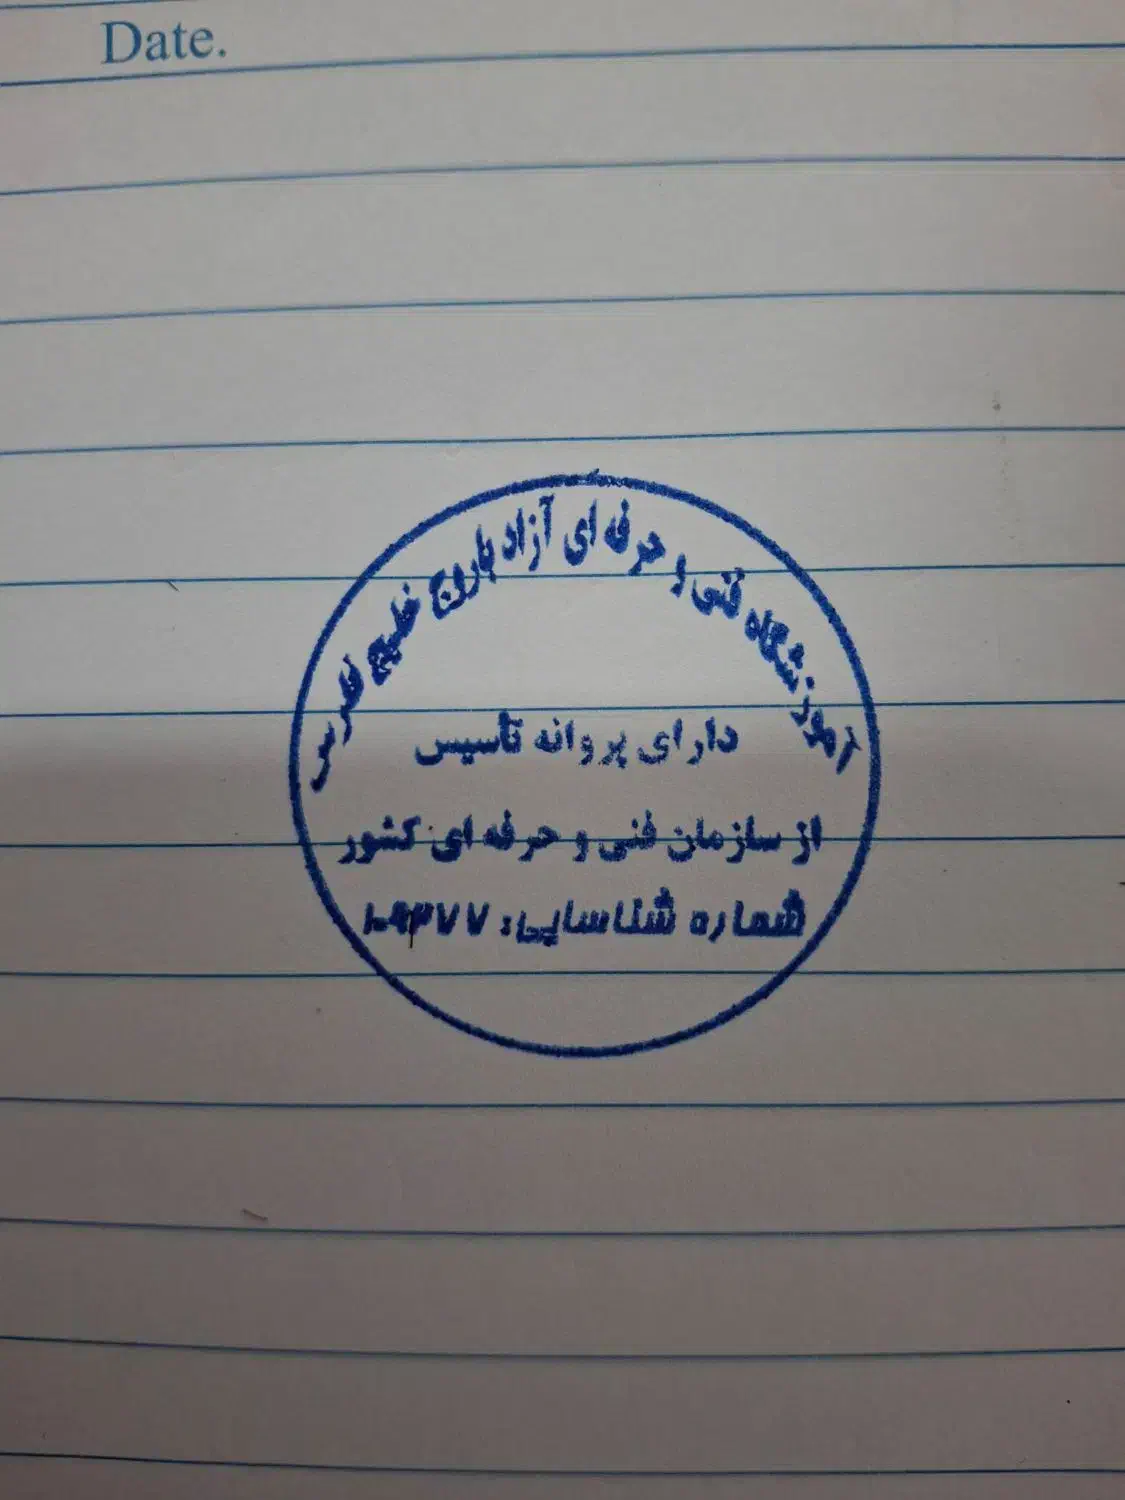 Date.
آموزشگاه فنی و حرفه ای آزاد باروج خلیج فارس
دارای پروانه تأسیس
از سازمان فنی و حرفه ای کشور
شماره شناسایی: ۱۰۹۳۷۷